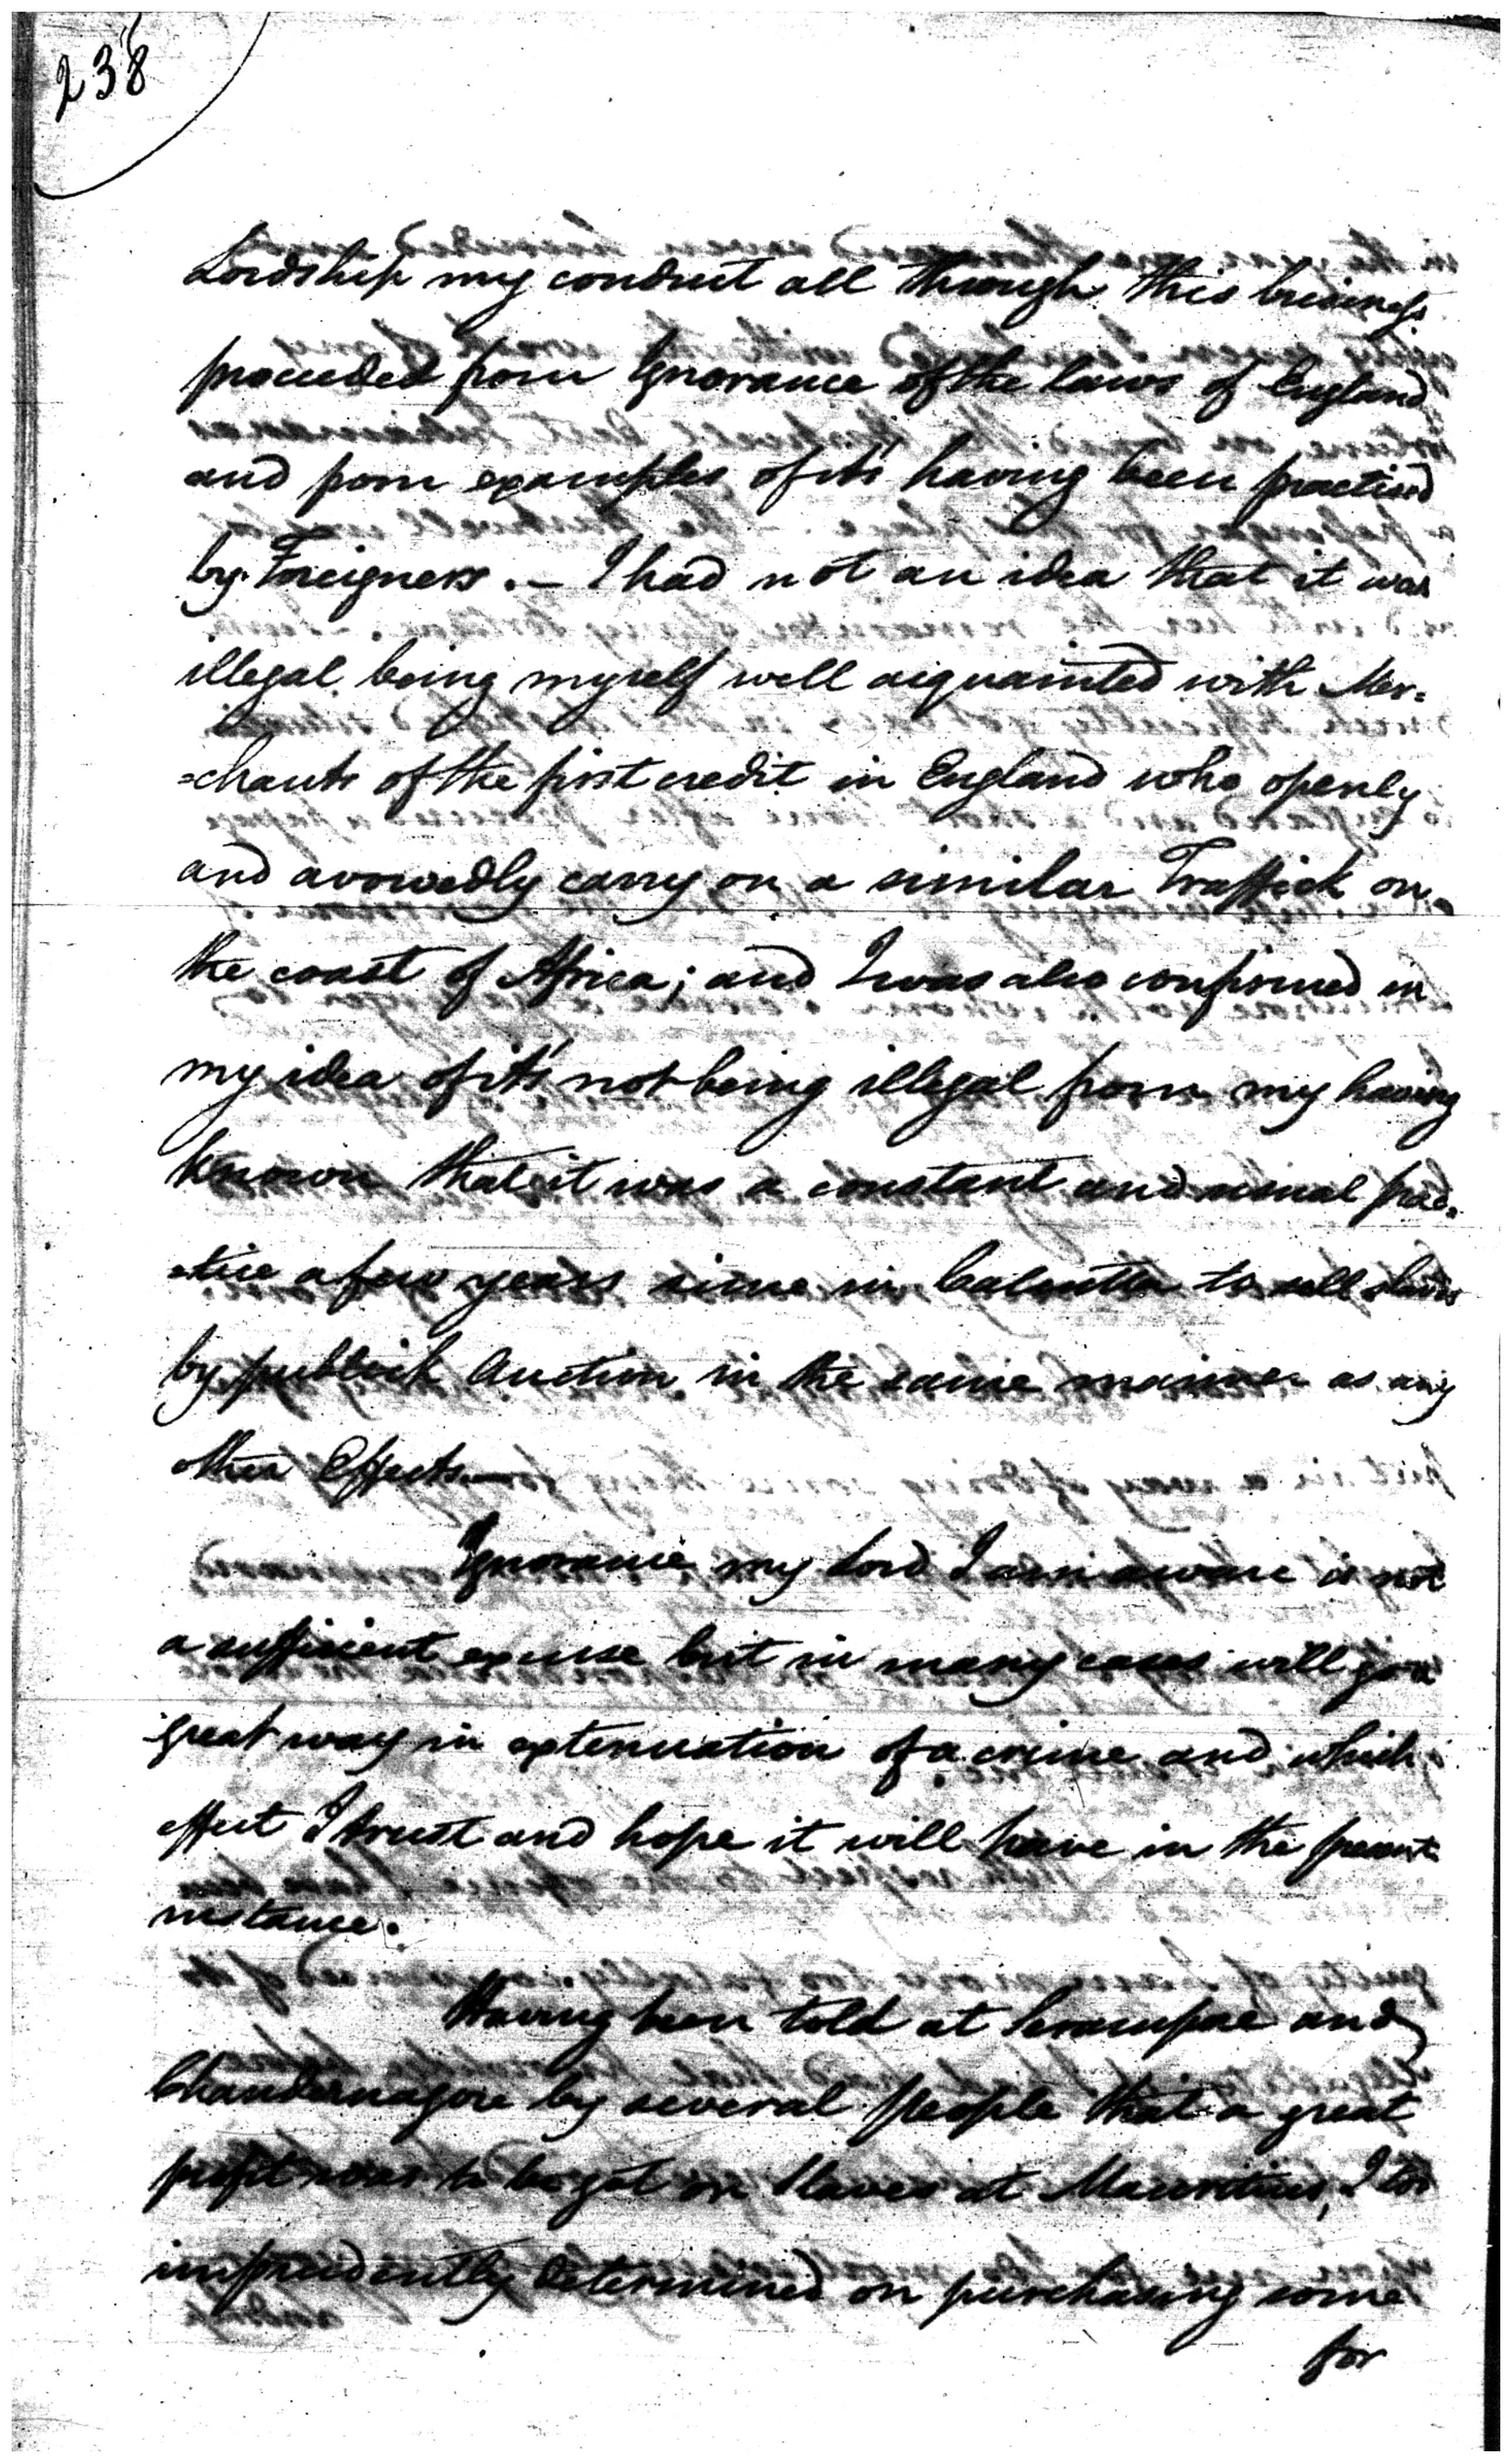 238
Lordship my conduct all through this business
proceeded from Ignorance of the laws of England,
and from examples of it's having been practised
by Foreigners. — I had not an idea that it was
illegal being myself well acquainted with Mer=
=chants of the first credit in England who openly
and avowedly carry on a similar Traffick on
the coast of Africa; and I was also confirmed in
my idea of it's not being illegal from my having
known that it was a constant and usual prac=
=tice a few years since in Calcutta to sell slaves
by publick Auction in the same manner as any
other Effects. —
Ignorance my Lord I am aware is not
a sufficient excuse but in many cases will go a
great way in extenuation of a crime and which
effect I trust and hope it will have in the present
instance.
Having been told at Serampore and
Chandernagore by several people that a great
profit was to be got on Slaves at Mauritius, I too
imprudently determined on purchasing some
for